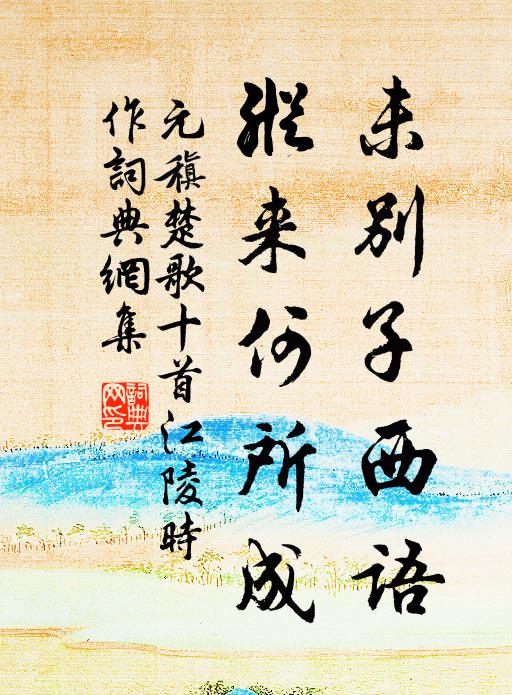 未別子西語
縱来何所成
元稹楚歌十首江陵時
作詞典網集
詞典网印